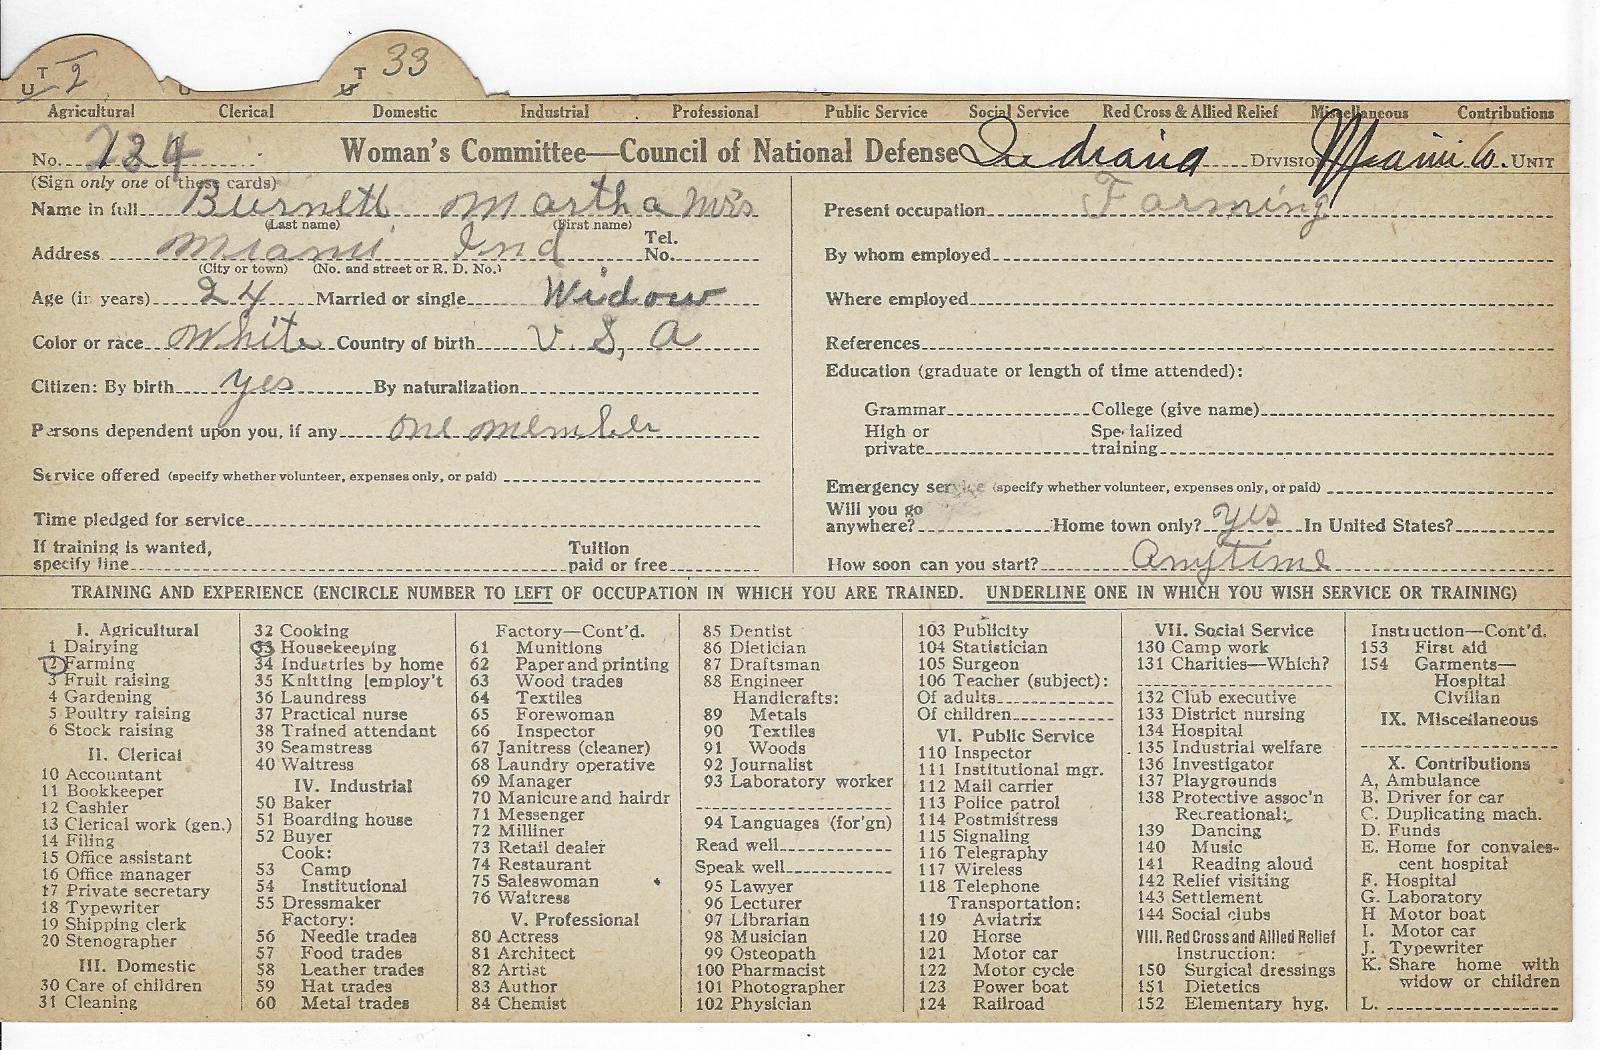 T 2 T 33
U U U
Agricultural Clerical Domestic Industrial Professional Public Service Social Service Red Cross & Allied Relief Miscellaneous Contributions
No. 724 Woman's Committee—Council of National Defense Indiana Division Miami Co. Unit
(Sign only one of these cards)
Name in full Burnett Martha Mrs
(Last name) (First name)
Address Miami Ind Tel. No.
(City or town) (No. and street or R. D. No.)
Age (in years) 24 Married or single Widow
Color or race White Country of birth U. S, A
Citizen: By birth yes By naturalization
Persons dependent upon you, if any one member
Service offered (specify whether volunteer, expenses only, or paid)
Time pledged for service
If training is wanted, specify line Tuition paid or free
Present occupation Farming
By whom employed
Where employed
References
Education (graduate or length of time attended):
Grammar College (give name)
High or private Specialized training
Emergency service (specify whether volunteer, expenses only, or paid)
Will you go anywhere? Home town only? yes In United States?
How soon can you start? Anytime
TRAINING AND EXPERIENCE (ENCIRCLE NUMBER TO LEFT OF OCCUPATION IN WHICH YOU ARE TRAINED. UNDERLINE ONE IN WHICH YOU WISH SERVICE OR TRAINING)
I. Agricultural
1 Dairying
2 Farming
3 Fruit raising
4 Gardening
5 Poultry raising
6 Stock raising
II. Clerical
10 Accountant
11 Bookkeeper
12 Cashier
13 Clerical work (gen.)
14 Filing
15 Office assistant
16 Office manager
17 Private secretary
18 Typewriter
19 Shipping clerk
20 Stenographer
III. Domestic
30 Care of children
31 Cleaning
32 Cooking
33 Housekeeping
34 Industries by home
35 Knitting [employ't
36 Laundress
37 Practical nurse
38 Trained attendant
39 Seamstress
40 Waitress
IV. Industrial
50 Baker
51 Boarding house
52 Buyer
Cook:
53 Camp
54 Institutional
55 Dressmaker
Factory:
56 Needle trades
57 Food trades
58 Leather trades
59 Hat trades
60 Metal trades
Factory—Cont'd.
61 Munitions
62 Paper and printing
63 Wood trades
64 Textiles
65 Forewoman
66 Inspector
67 Janitress (cleaner)
68 Laundry operative
69 Manager
70 Manicure and hairdr
71 Messenger
72 Milliner
73 Retail dealer
74 Restaurant
75 Saleswoman
76 Waitress
V. Professional
80 Actress
81 Architect
82 Artist
83 Author
84 Chemist
85 Dentist
86 Dietician
87 Draftsman
88 Engineer
Handicrafts:
89 Metals
90 Textiles
91 Woods
92 Journalist
93 Laboratory worker
94 Languages (for'gn)
Read well
Speak well
95 Lawyer
96 Lecturer
97 Librarian
98 Musician
99 Osteopath
100 Pharmacist
101 Photographer
102 Physician
103 Publicity
104 Statistician
105 Surgeon
106 Teacher (subject):
Of adults
Of children
VI. Public Service
110 Inspector
111 Institutional mgr.
112 Mail carrier
113 Police patrol
114 Postmistress
115 Signaling
116 Telegraphy
117 Wireless
118 Telephone
Transportation:
119 Aviatrix
120 Horse
121 Motor car
122 Motor cycle
123 Power boat
124 Railroad
VII. Social Service
130 Camp work
131 Charities—Which?
132 Club executive
133 District nursing
134 Hospital
135 Industrial welfare
136 Investigator
137 Playgrounds
138 Protective assoc'n
Recreational:
139 Dancing
140 Music
141 Reading aloud
142 Relief visiting
143 Settlement
144 Social clubs
VIII. Red Cross and Allied Relief
Instruction:
150 Surgical dressings
151 Dietetics
152 Elementary hyg.
Instruction—Cont'd.
153 First aid
154 Garments—
Hospital
Civilian
IX. Miscellaneous
X. Contributions
A, Ambulance
B. Driver for car
C. Duplicating mach.
D. Funds
E. Home for convales-
cent hospital
F. Hospital
G. Laboratory
H Motor boat
I. Motor car
J. Typewriter
K. Share home with
widow or children
L.